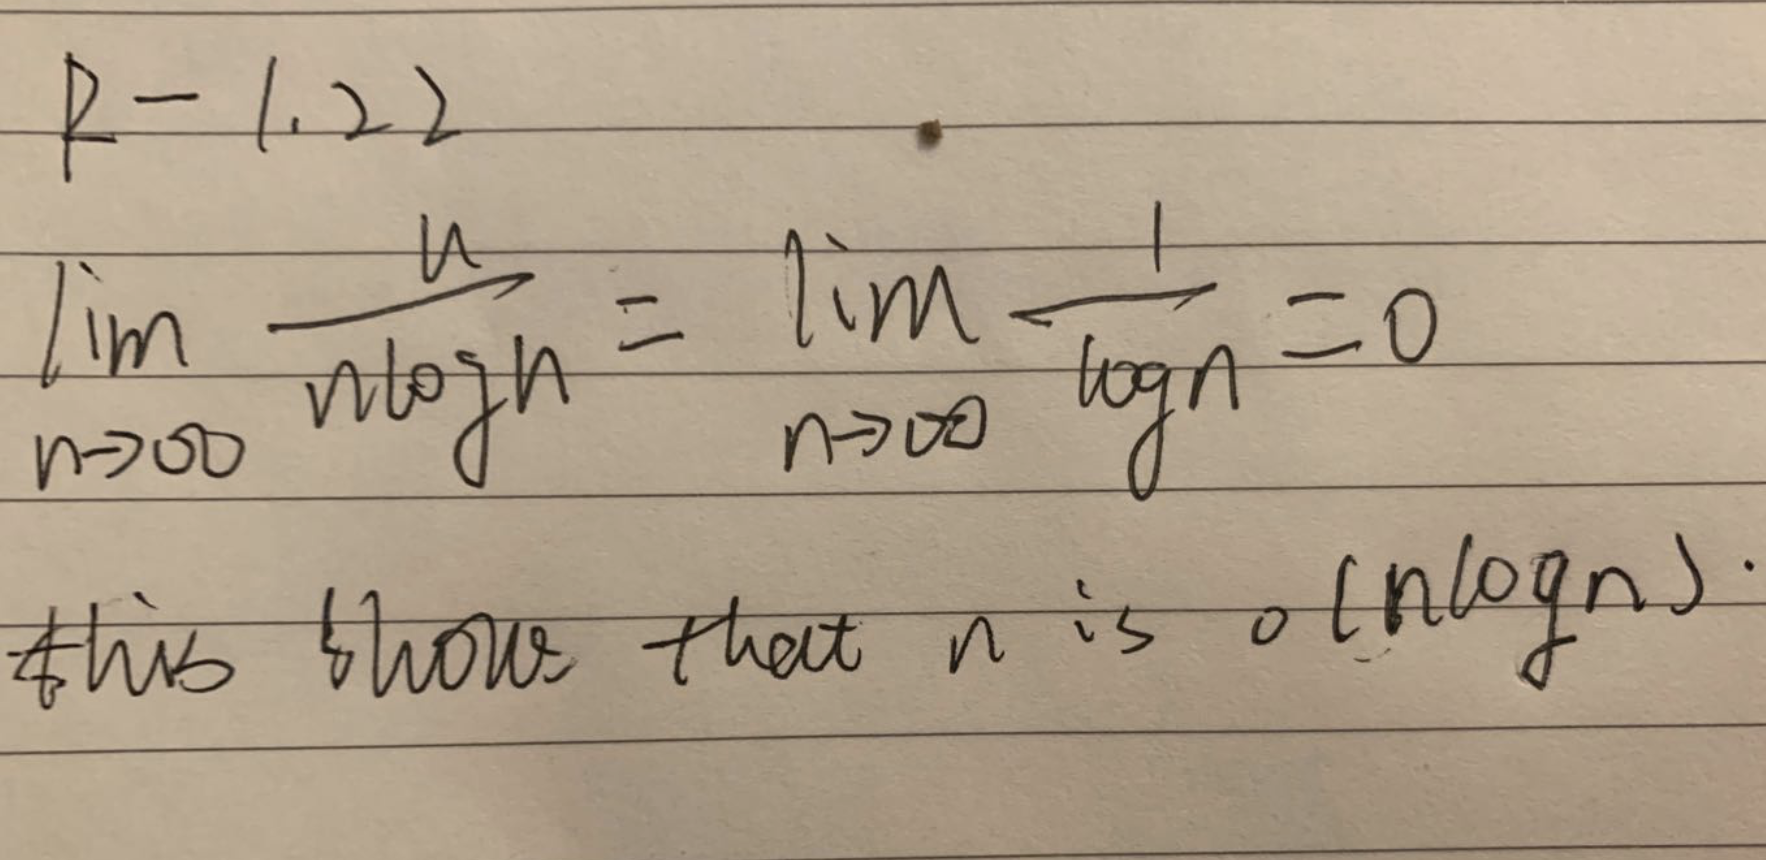 R-1.22
lim n→∞ n/(nlogn) = lim n→∞ 1/(logn) = 0
this shows that n is o(nlogn).